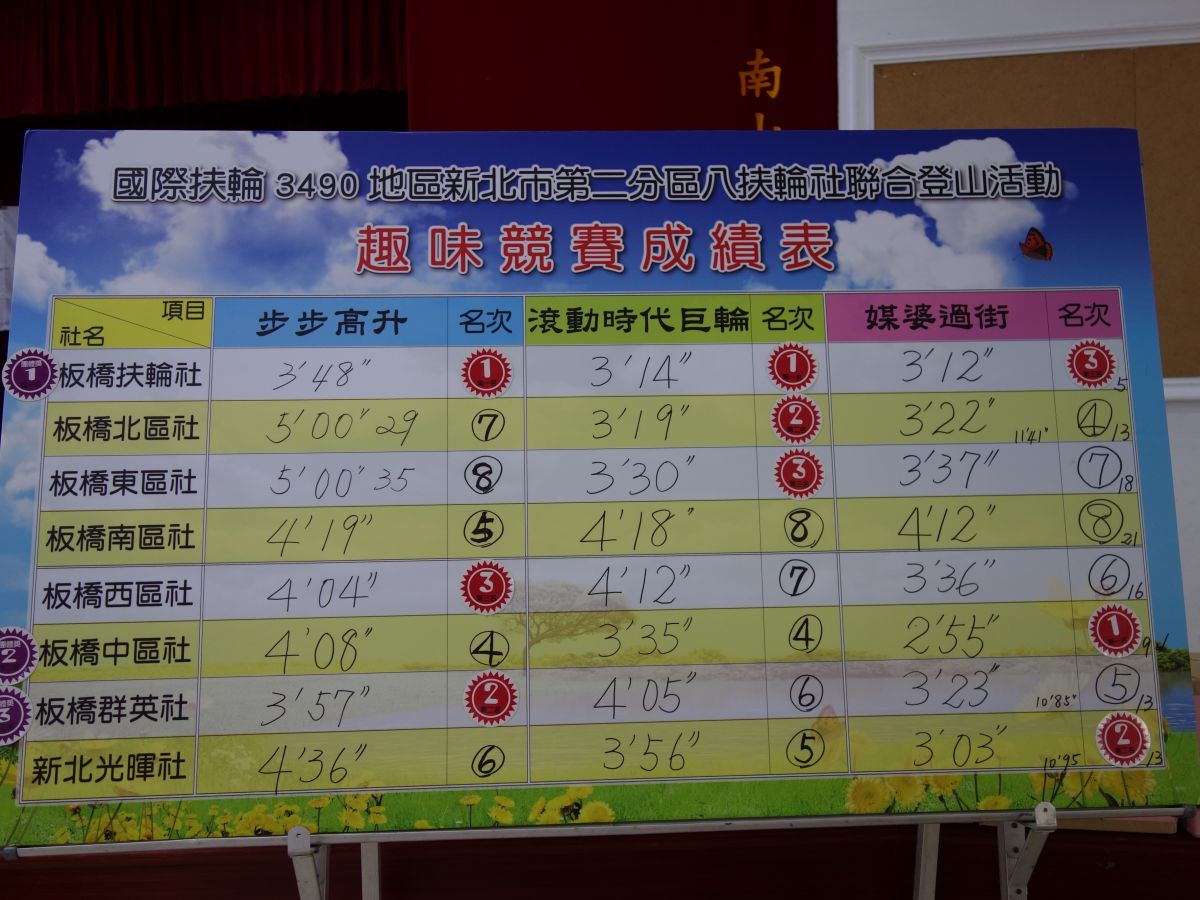 南
國際扶輪 3490 地區新北市第二分區八扶輪社聯合登山活動
趣味競賽成績表
項目 社名 步步高升 名次 滾動時代巨輪 名次 媒婆過街 名次
1 板橋扶輪社 3'48" 1 3'14" 1 3'12" 3 5
板橋北區社 5'00"29 7 3'19" 2 3'22" 11'41" 4 13
板橋東區社 5'00"35 8 3'30" 3 3'37" 7 18
板橋南區社 4'19" 5 4'18" 8 4'12" 8 21
板橋西區社 4'04" 3 4'12" 7 3'36" 6 16
2 板橋中區社 4'08" 4 3'35" 4 2'55" 1 9
3 板橋群英社 3'57" 2 4'05" 6 3'23" 10'85" 5 13
新北光暉社 4'36" 6 3'56" 5 3'03" 10'95 2 13